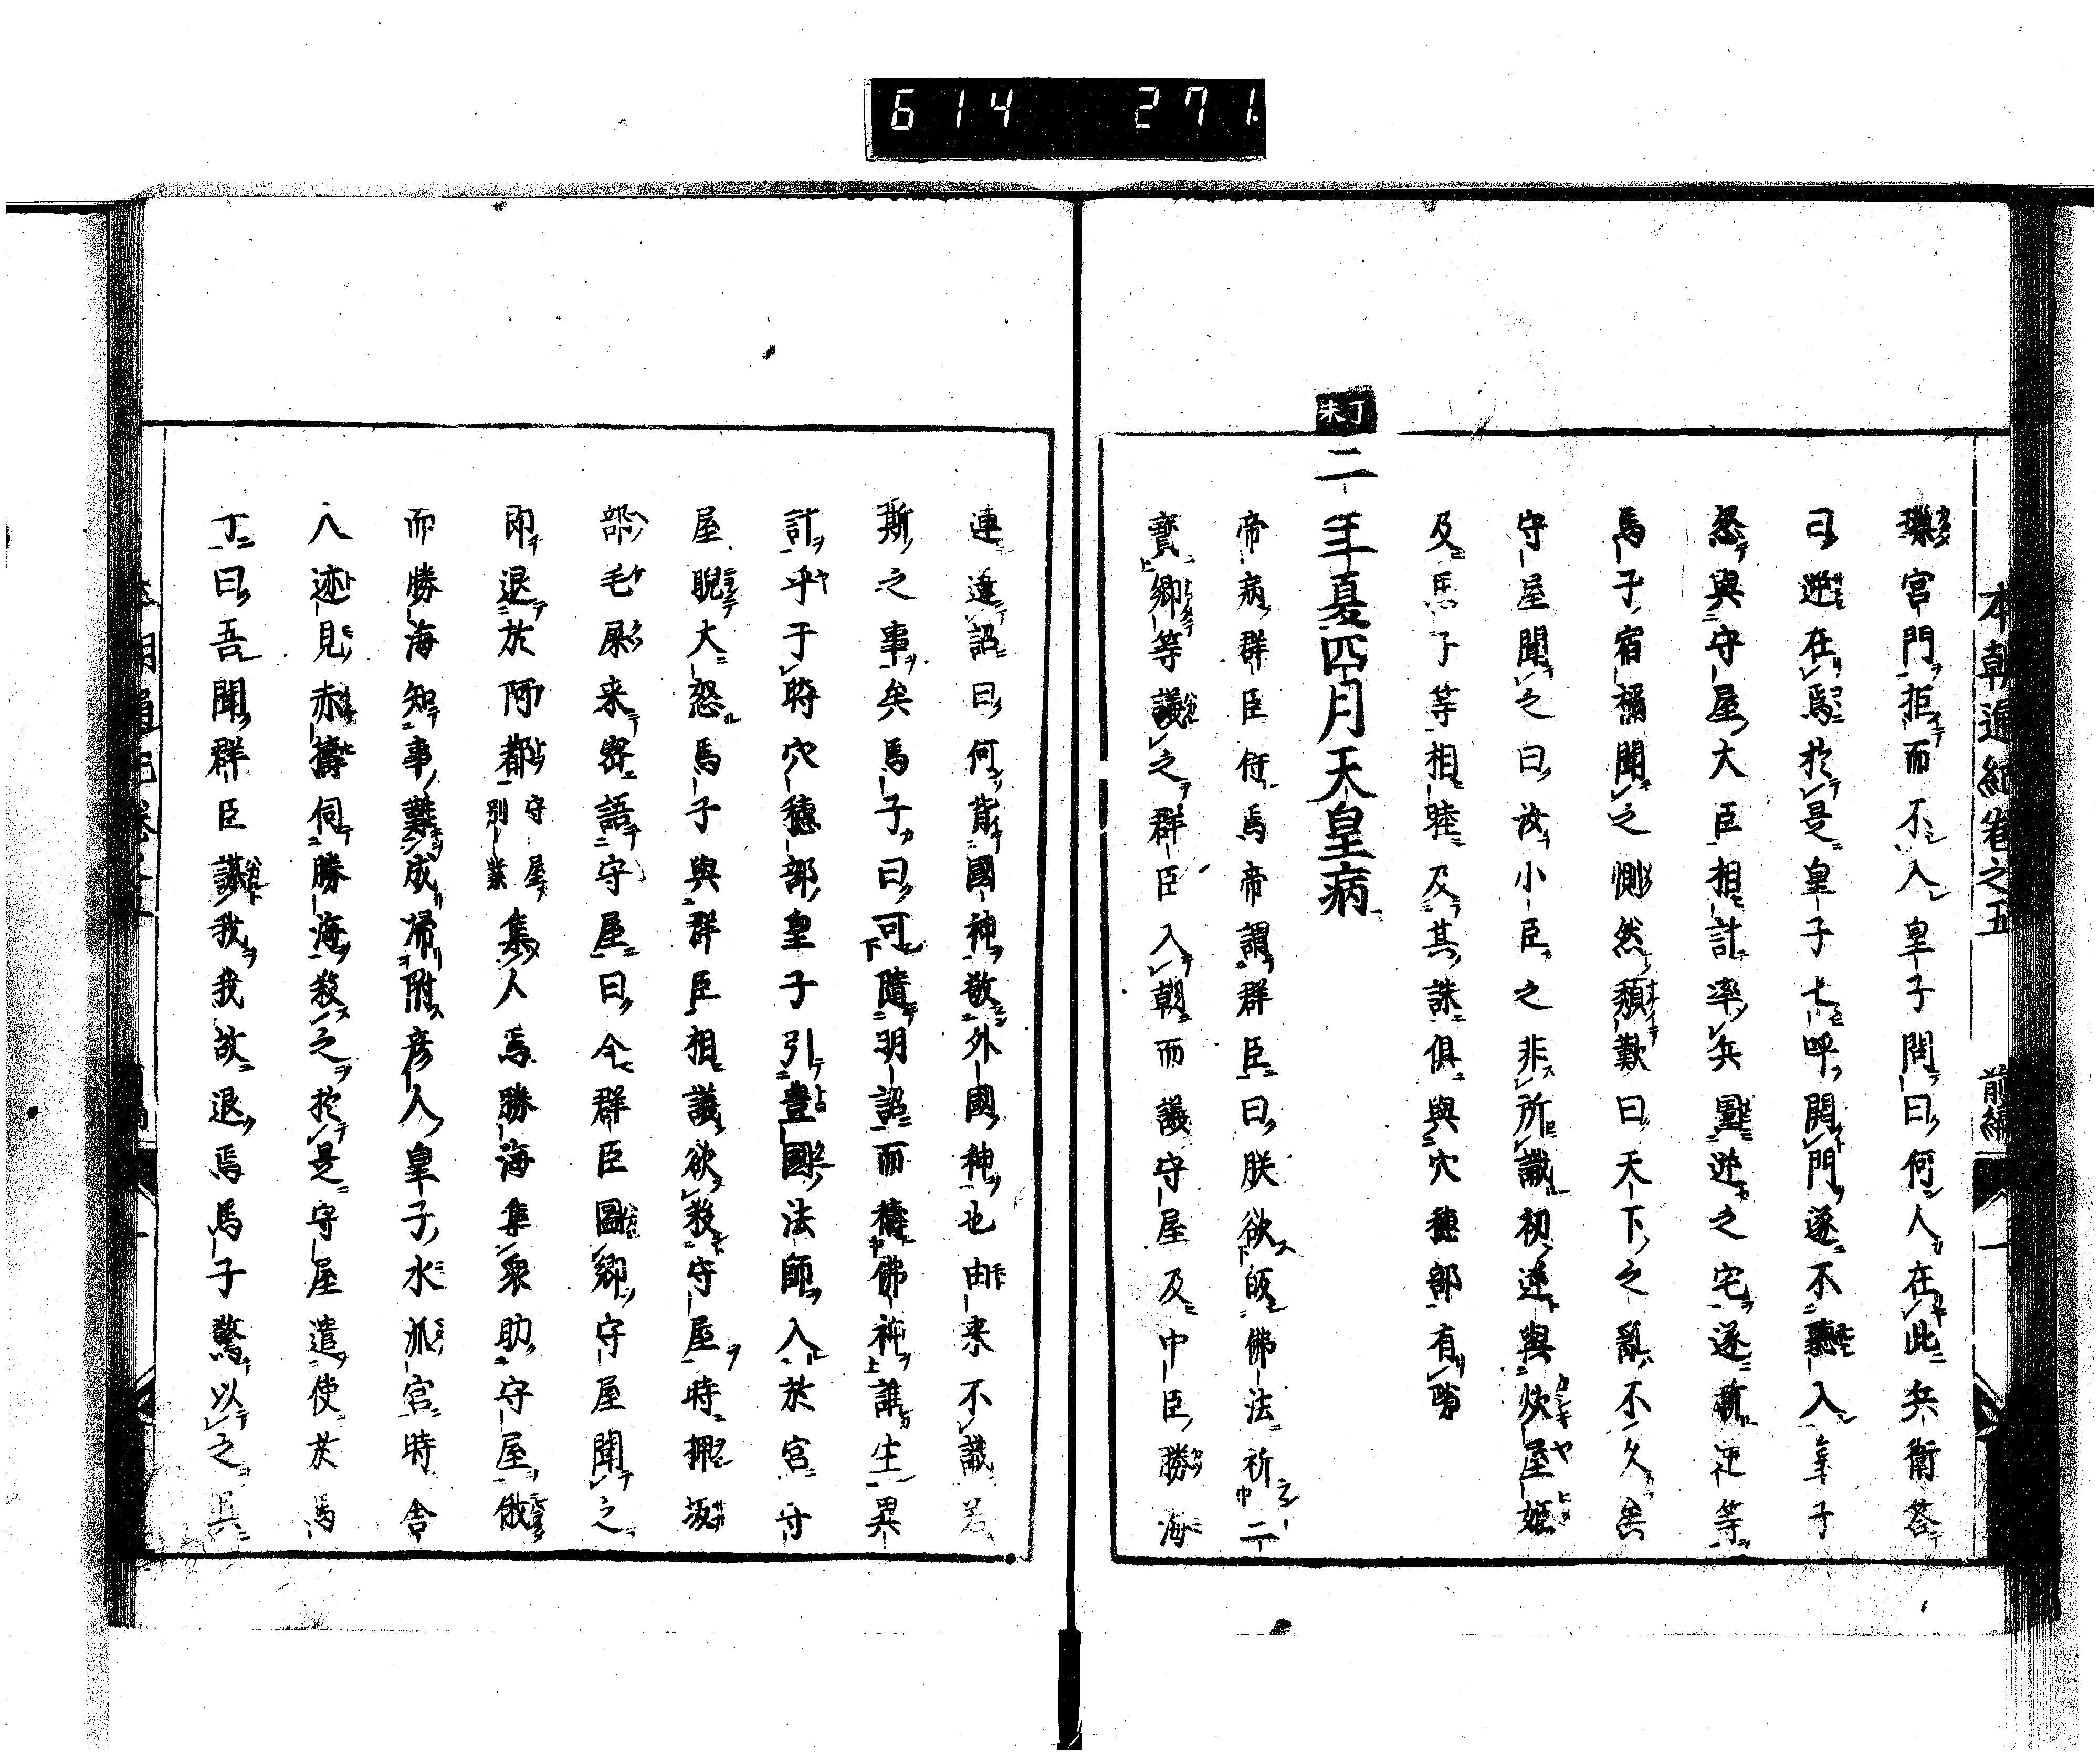 614 271
本朝通紀卷之五 前編 一
璣宮門拒而不入皇子問曰何人在此兵衛荅
曰逆在焉於是皇子七呼開門遂不聽入皇子
怒與守屋大臣相計率兵圍逆之宅遂斬逆等
馬子宿禰聞之惻然頽歎曰天下之亂不久矣
守屋聞之曰汝小臣之非所識初逆與炊屋姬
及馬子等相睦及其誅俱與穴穗部有隙
丁未
二年夏四月天皇病
帝病群臣侍焉帝謂群臣曰朕欲皈佛法祈二
寳卿等議之群臣入朝而議守屋及中臣勝海
連違詔曰何背國神敬外國神也由来不識若
斯之事矣馬子曰可隨明詔而禱佛神誰生異
計乎于時穴穗部皇子引豊國法師入於宮守
屋睨大怒馬子與群臣相議欲殺守屋時押坂
部毛屎来密語守屋曰今群臣圖卿守屋聞之
即退於阿都守屋別業集人焉勝海集衆助守屋俄
而勝海知事難成帰附彥人皇子水派宮時舎
人迹見赤檮伺勝海殺之於是守屋遣使於馬
子曰吾聞群臣謀我我故退焉馬子驚以之具